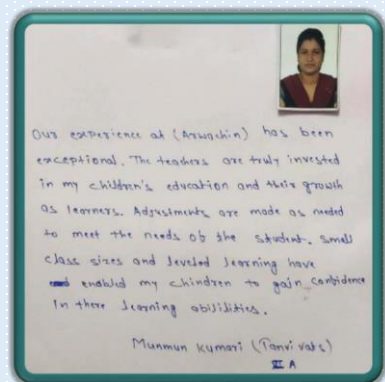 Our experience at (Arwachin) has been
exceptional. The teachers are truly invested
in my children's education and their growth
as learners. Adjustments are made as needed
to meet the needs of the student. Small
class sizes and leveled learning have
enabled my chindren to gain confidence
In there learning abililities.
Munmun Kumari (Tanvi vats)
VI A